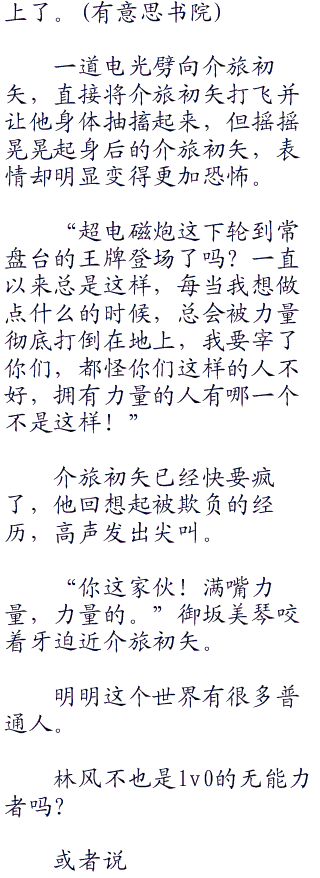 上了。(有意思书院)
一道电光劈向介旅初
矢，直接将介旅初矢打飞并
让他身体抽搐起来，但摇摇
晃晃起身后的介旅初矢，表
情却明显变得更加恐怖。
“超电磁炮这下轮到常
盘台的王牌登场了吗？一直
以来总是这样，每当我想做
点什么的时候，总会被力量
彻底打倒在地上，我要宰了
你们，都怪你们这样的人不
好，拥有力量的人有哪一个
不是这样！”
介旅初矢已经快要疯
了，他回想起被欺负的经
历，高声发出尖叫。
“你这家伙！满嘴力
量，力量的。”御坂美琴咬
着牙迫近介旅初矢。
明明这个世界有很多普
通人。
林风不也是lv0的无能力
者吗？
或者说